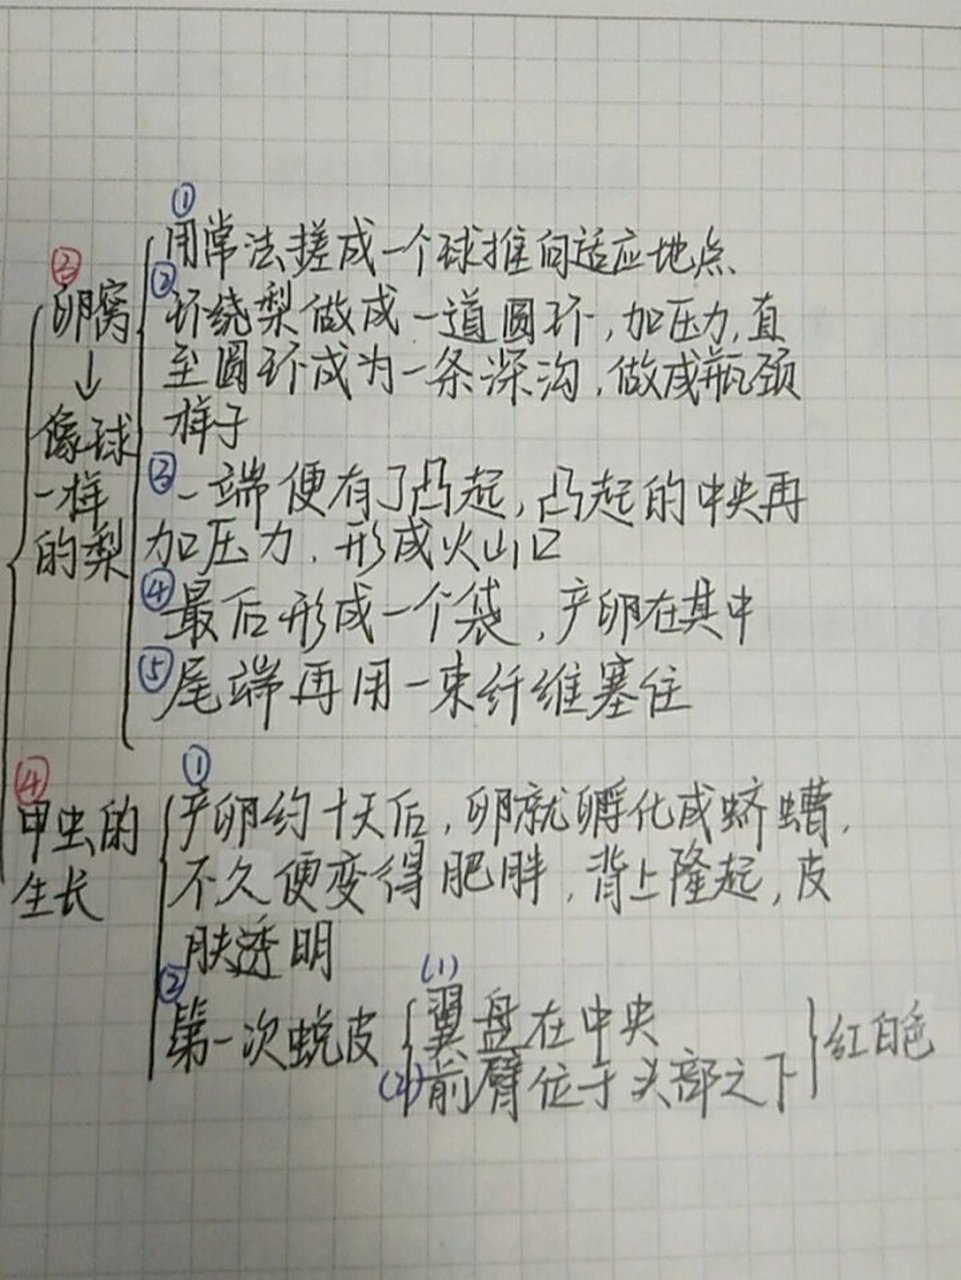 ③
卵窝
↓
像球
一样
的梨
①
用常法搓成一个球推向适应地点、
②
环绕梨做成一道圆环，加压力，直
至圆环成为一条深沟，做成瓶颈
样子
③一端便有了凸起，凸起的中央再
加压力，形成火山口
④最后形成一个袋，产卵在其中
⑤尾端再用一束纤维塞住
④
甲虫的
生长
①
产卵约十天后，卵就孵化成蛴螬，
不久便变得肥胖，背上隆起，皮
肤透明
②
第一次蜕皮
(1)
翼盘在中央
(2)前臂位于头部之下
红白色